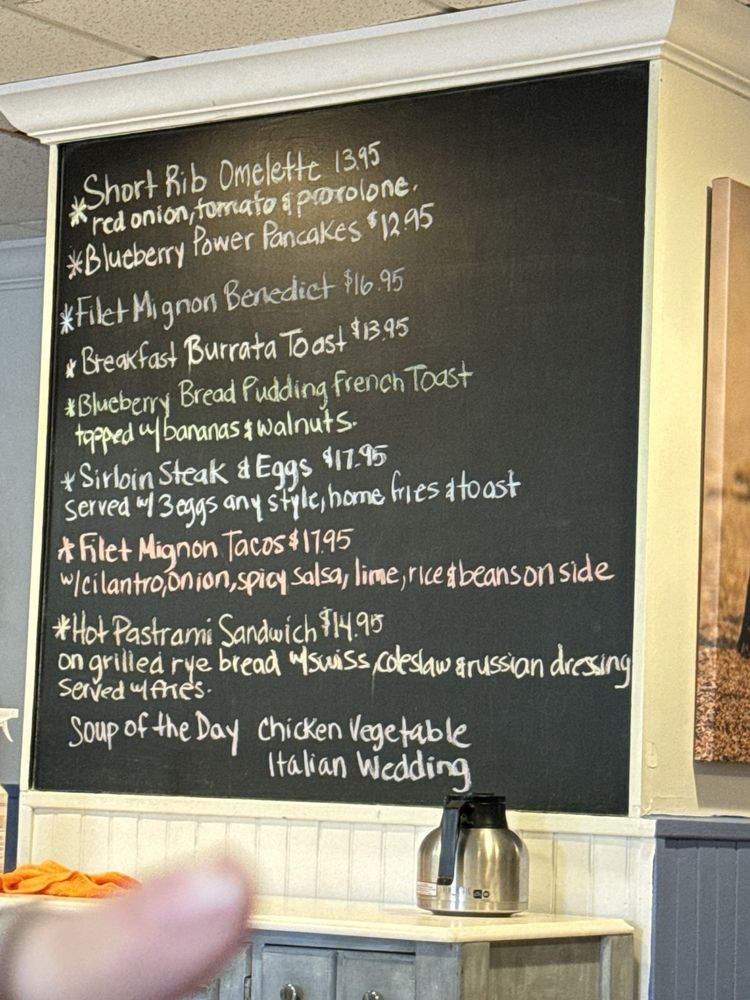 *Short Rib Omelette 13.95
red onion, tomato & provolone.
*Blueberry Power Pancakes $12.95
*Filet Mignon Benedict $16.95
*Breakfast Burrata Toast $13.95
*Blueberry Bread Pudding French Toast
topped w/ bananas & walnuts.
*Sirloin Steak & Eggs $17.95
Served w/ 3 eggs any style, home fries & toast
*Filet Mignon Tacos $17.95
w/cilantro, onion, spicy salsa, lime, rice & beans on side
*Hot Pastrami Sandwich $14.95
on grilled rye bread w/swiss, coleslaw & russian dressing
Served w/ fries.
Soup of the Day Chicken Vegetable
Italian Wedding